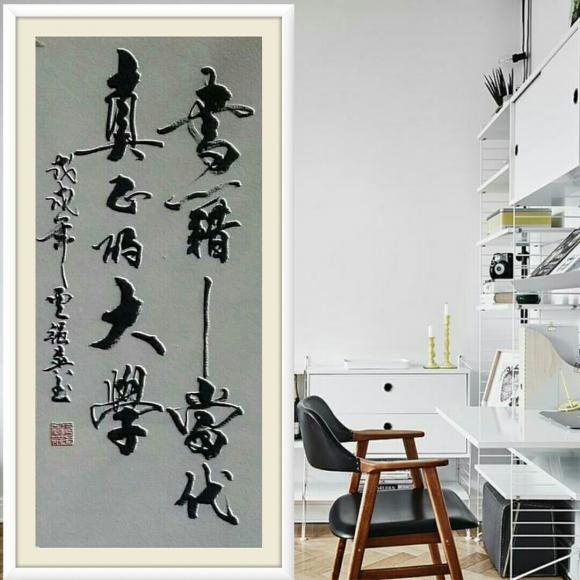 書籍——當代
真正的大學
戊戌年